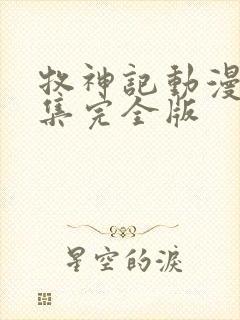 牧神記動漫
集完全版
星空的淚